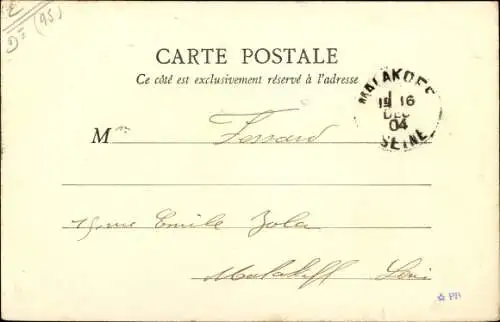 (95)
CARTE POSTALE
Ce côté est exclusivement réservé à l'adresse
MALAKOFF
16
DEC
04
SEINE
M
rue Emile Zola
Malakoff
PB